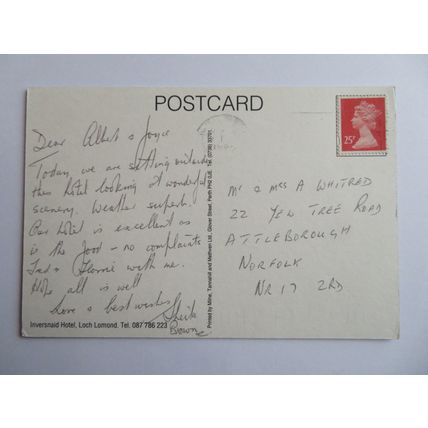 POSTCARD
Dear Albert & Joyce
Today we are sitting outside
this hotel looking at wonderful
scenery. Weather superb.
Our hotel is excellent as
is the food - no complaints
Fred & Florrie with me.
Hope all is well
Love & best wishes
Sheila
Brown
Inversnaid Hotel, Loch Lomond. Tel. 087 786 223
Printed by Milne, Tannahill and Methven Ltd., Glover Street, Perth PH2 0JE. Tel. (0738) 33701.
25P
Mr & Mrs A WHITRED
22 YEW TREE ROAD
ATTLEBOROUGH
NORFOLK
NR17 2RD